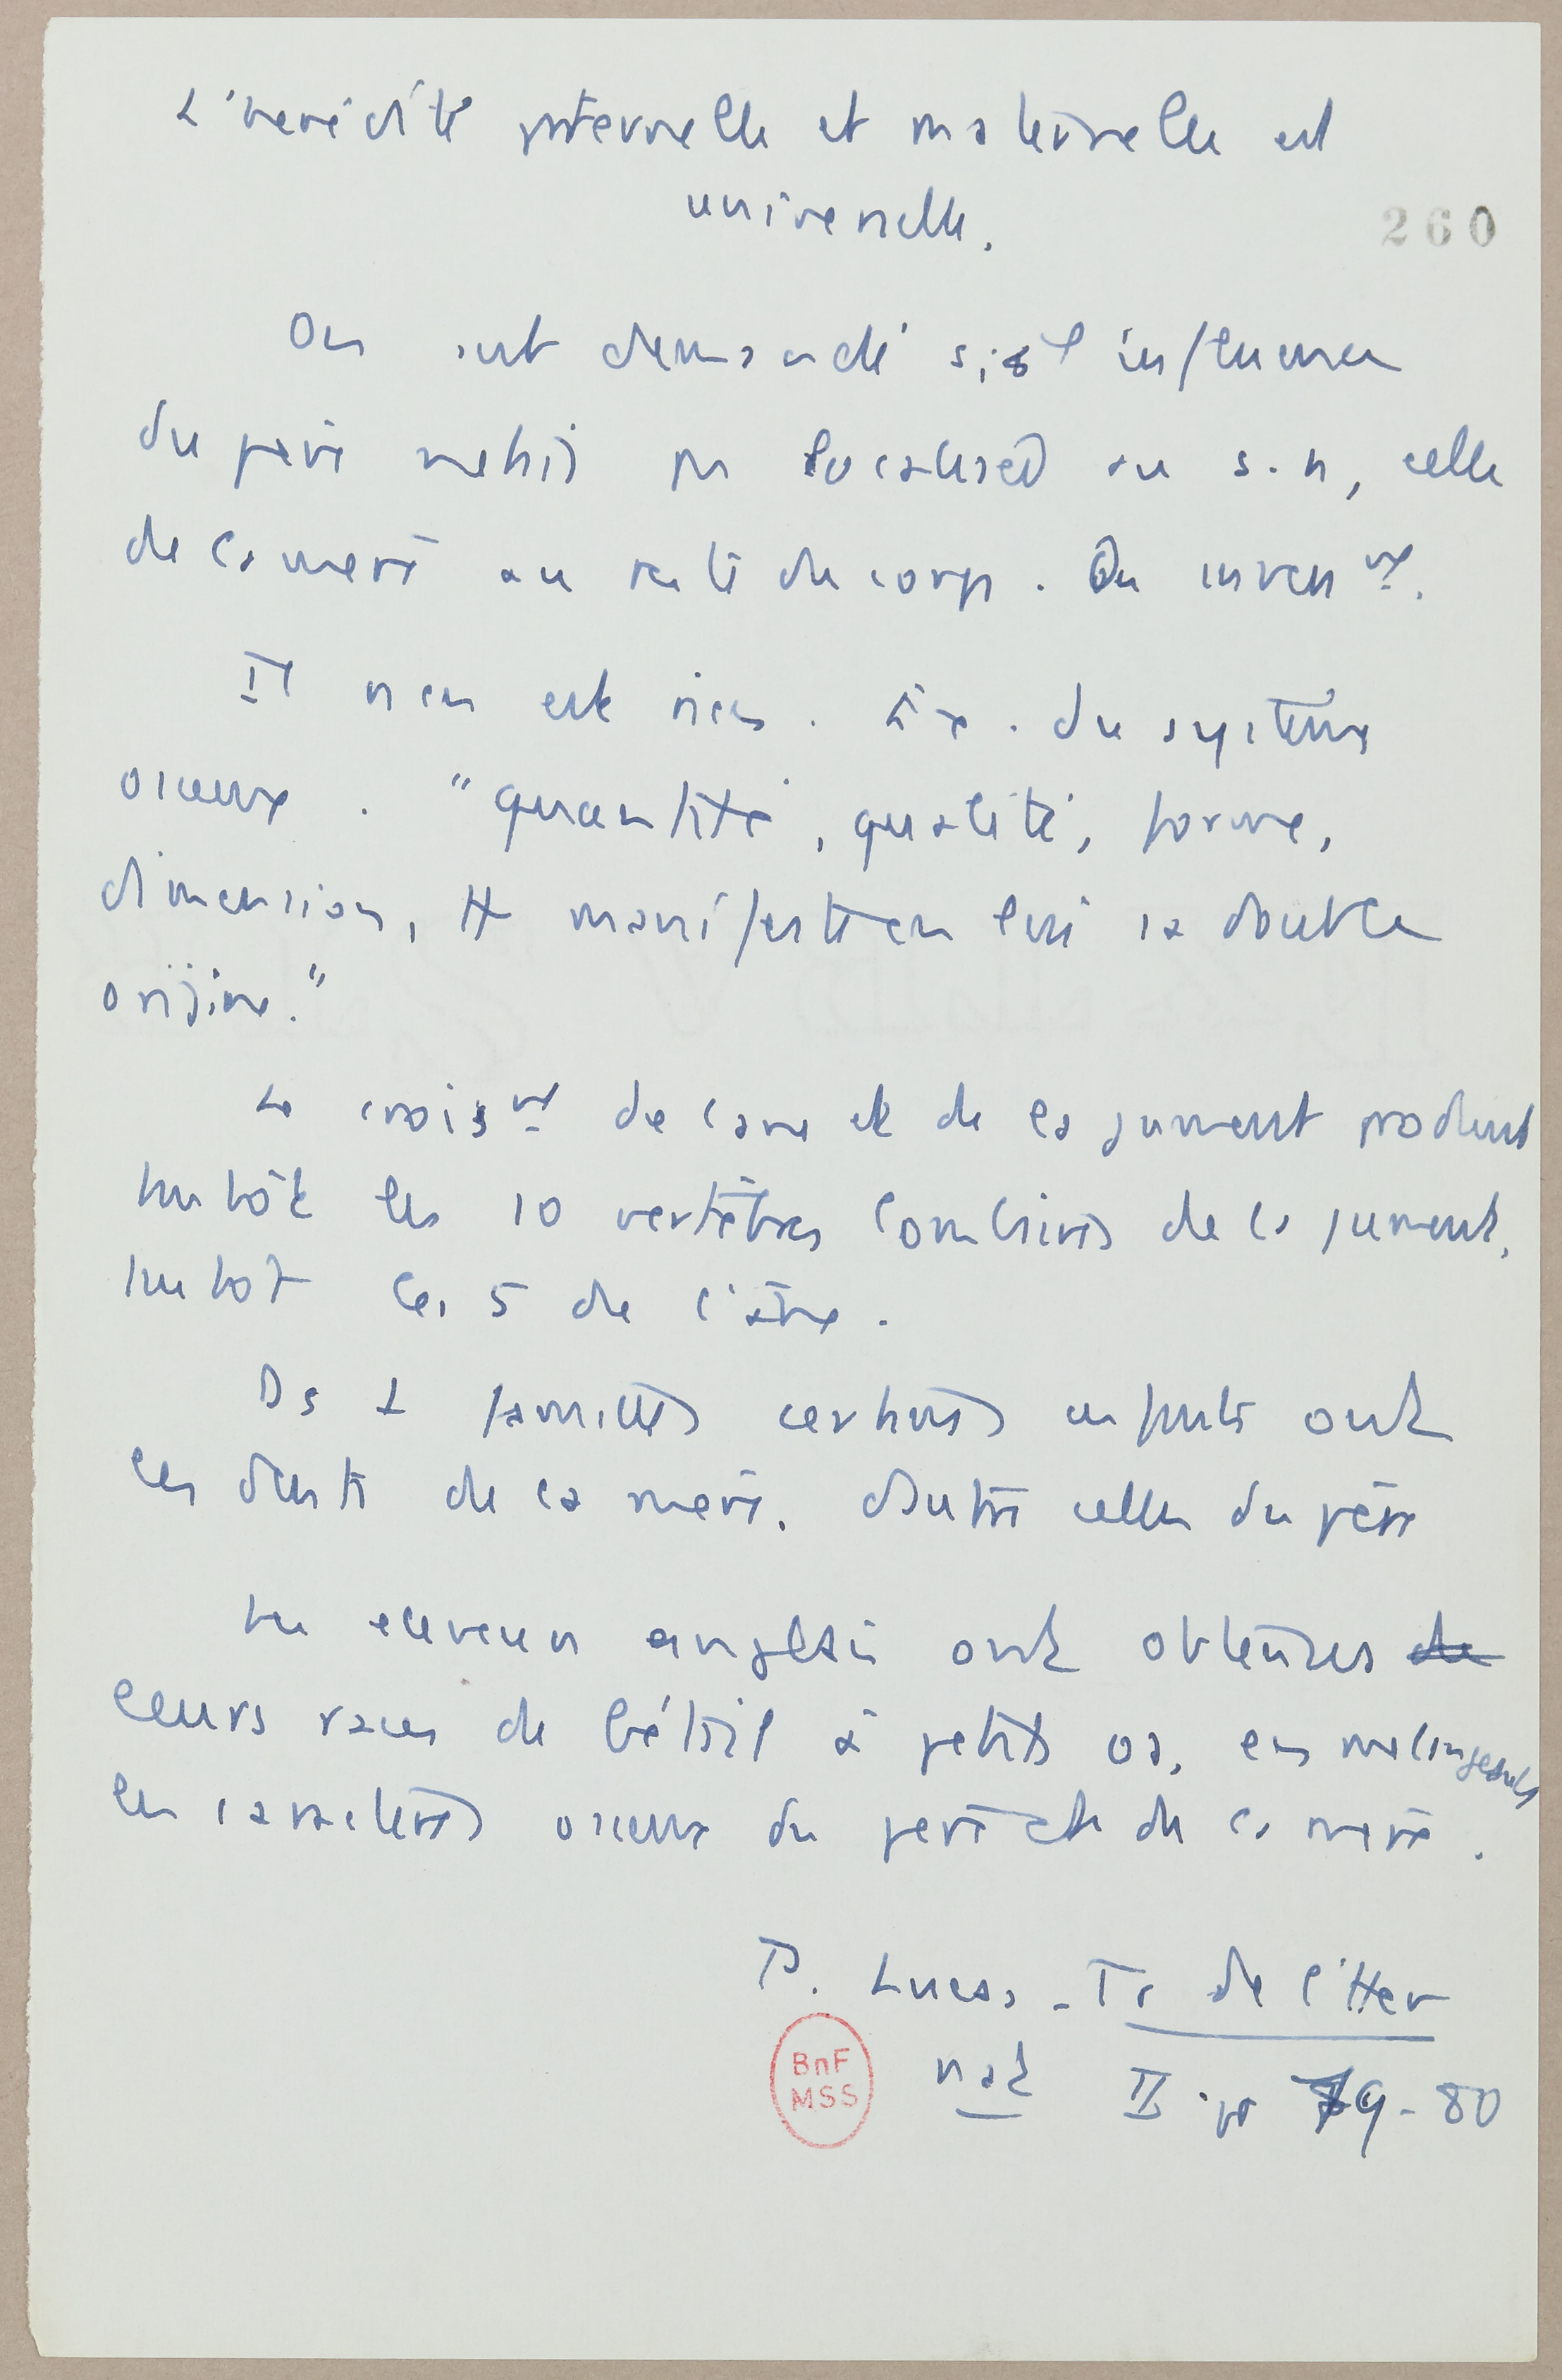 L'hérédité paternelle et maternelle est
universelle.
260
On s'est demandé si l'influence
du père n'était pas localisée au s.n, celle
de la mère au reste du corps. Ou invers nt.
Il n'en est rien. Ex. du système
osseux. "quantité, qualité, forme,
dimension, tt manifeste en lui la double
origine."
Le crois nt de l'âne et de la jument produit
tantôt les 10 vertèbres lombaires de la jument,
tantôt les 5 de l'âne.
Ds 1 familles certains enfants ont
les dents de la mère. D'autres celles du père
Les éleveurs anglais ont obtenues
leurs races de bétail à petits os, en mélangeant
les caractères osseux du père et de la mère.
P. Lucas. Tr de l'Her
nat II p 79-80
BnF
MSS